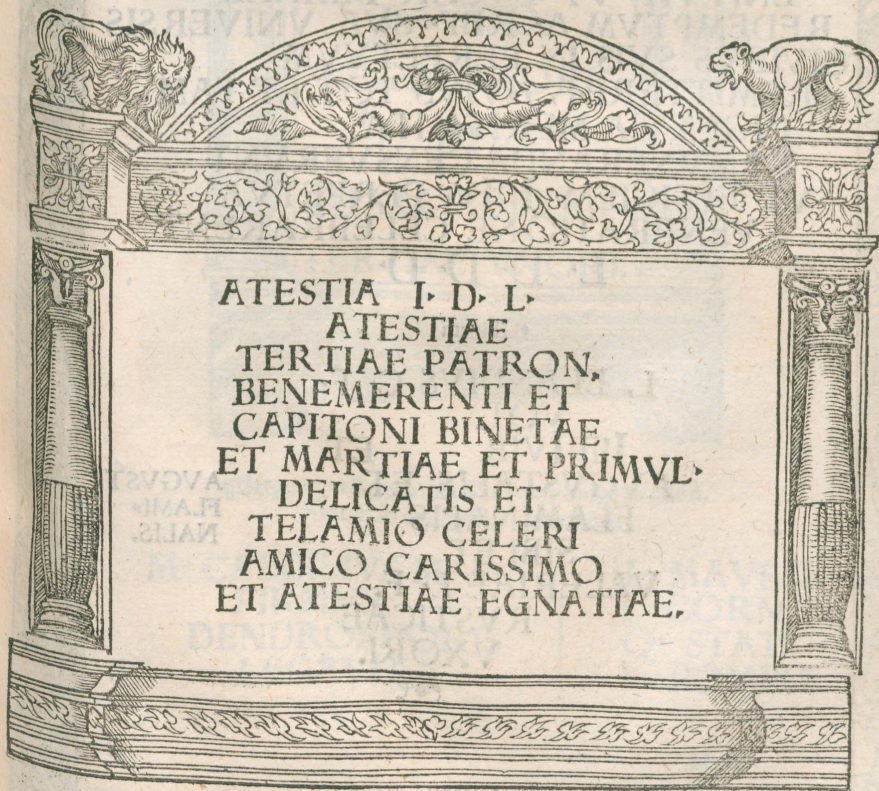 ATESTIA I· D· L·
ATESTIAE
TERTIAE PATRON,
BENEMERENTI ET
CAPITONI BINETAE
ET MARTIAE ET PRIMVL·
DELICATIS ET
TELAMIO CELERI
AMICO CARISSIMO
ET ATESTIAE EGNATIAE,